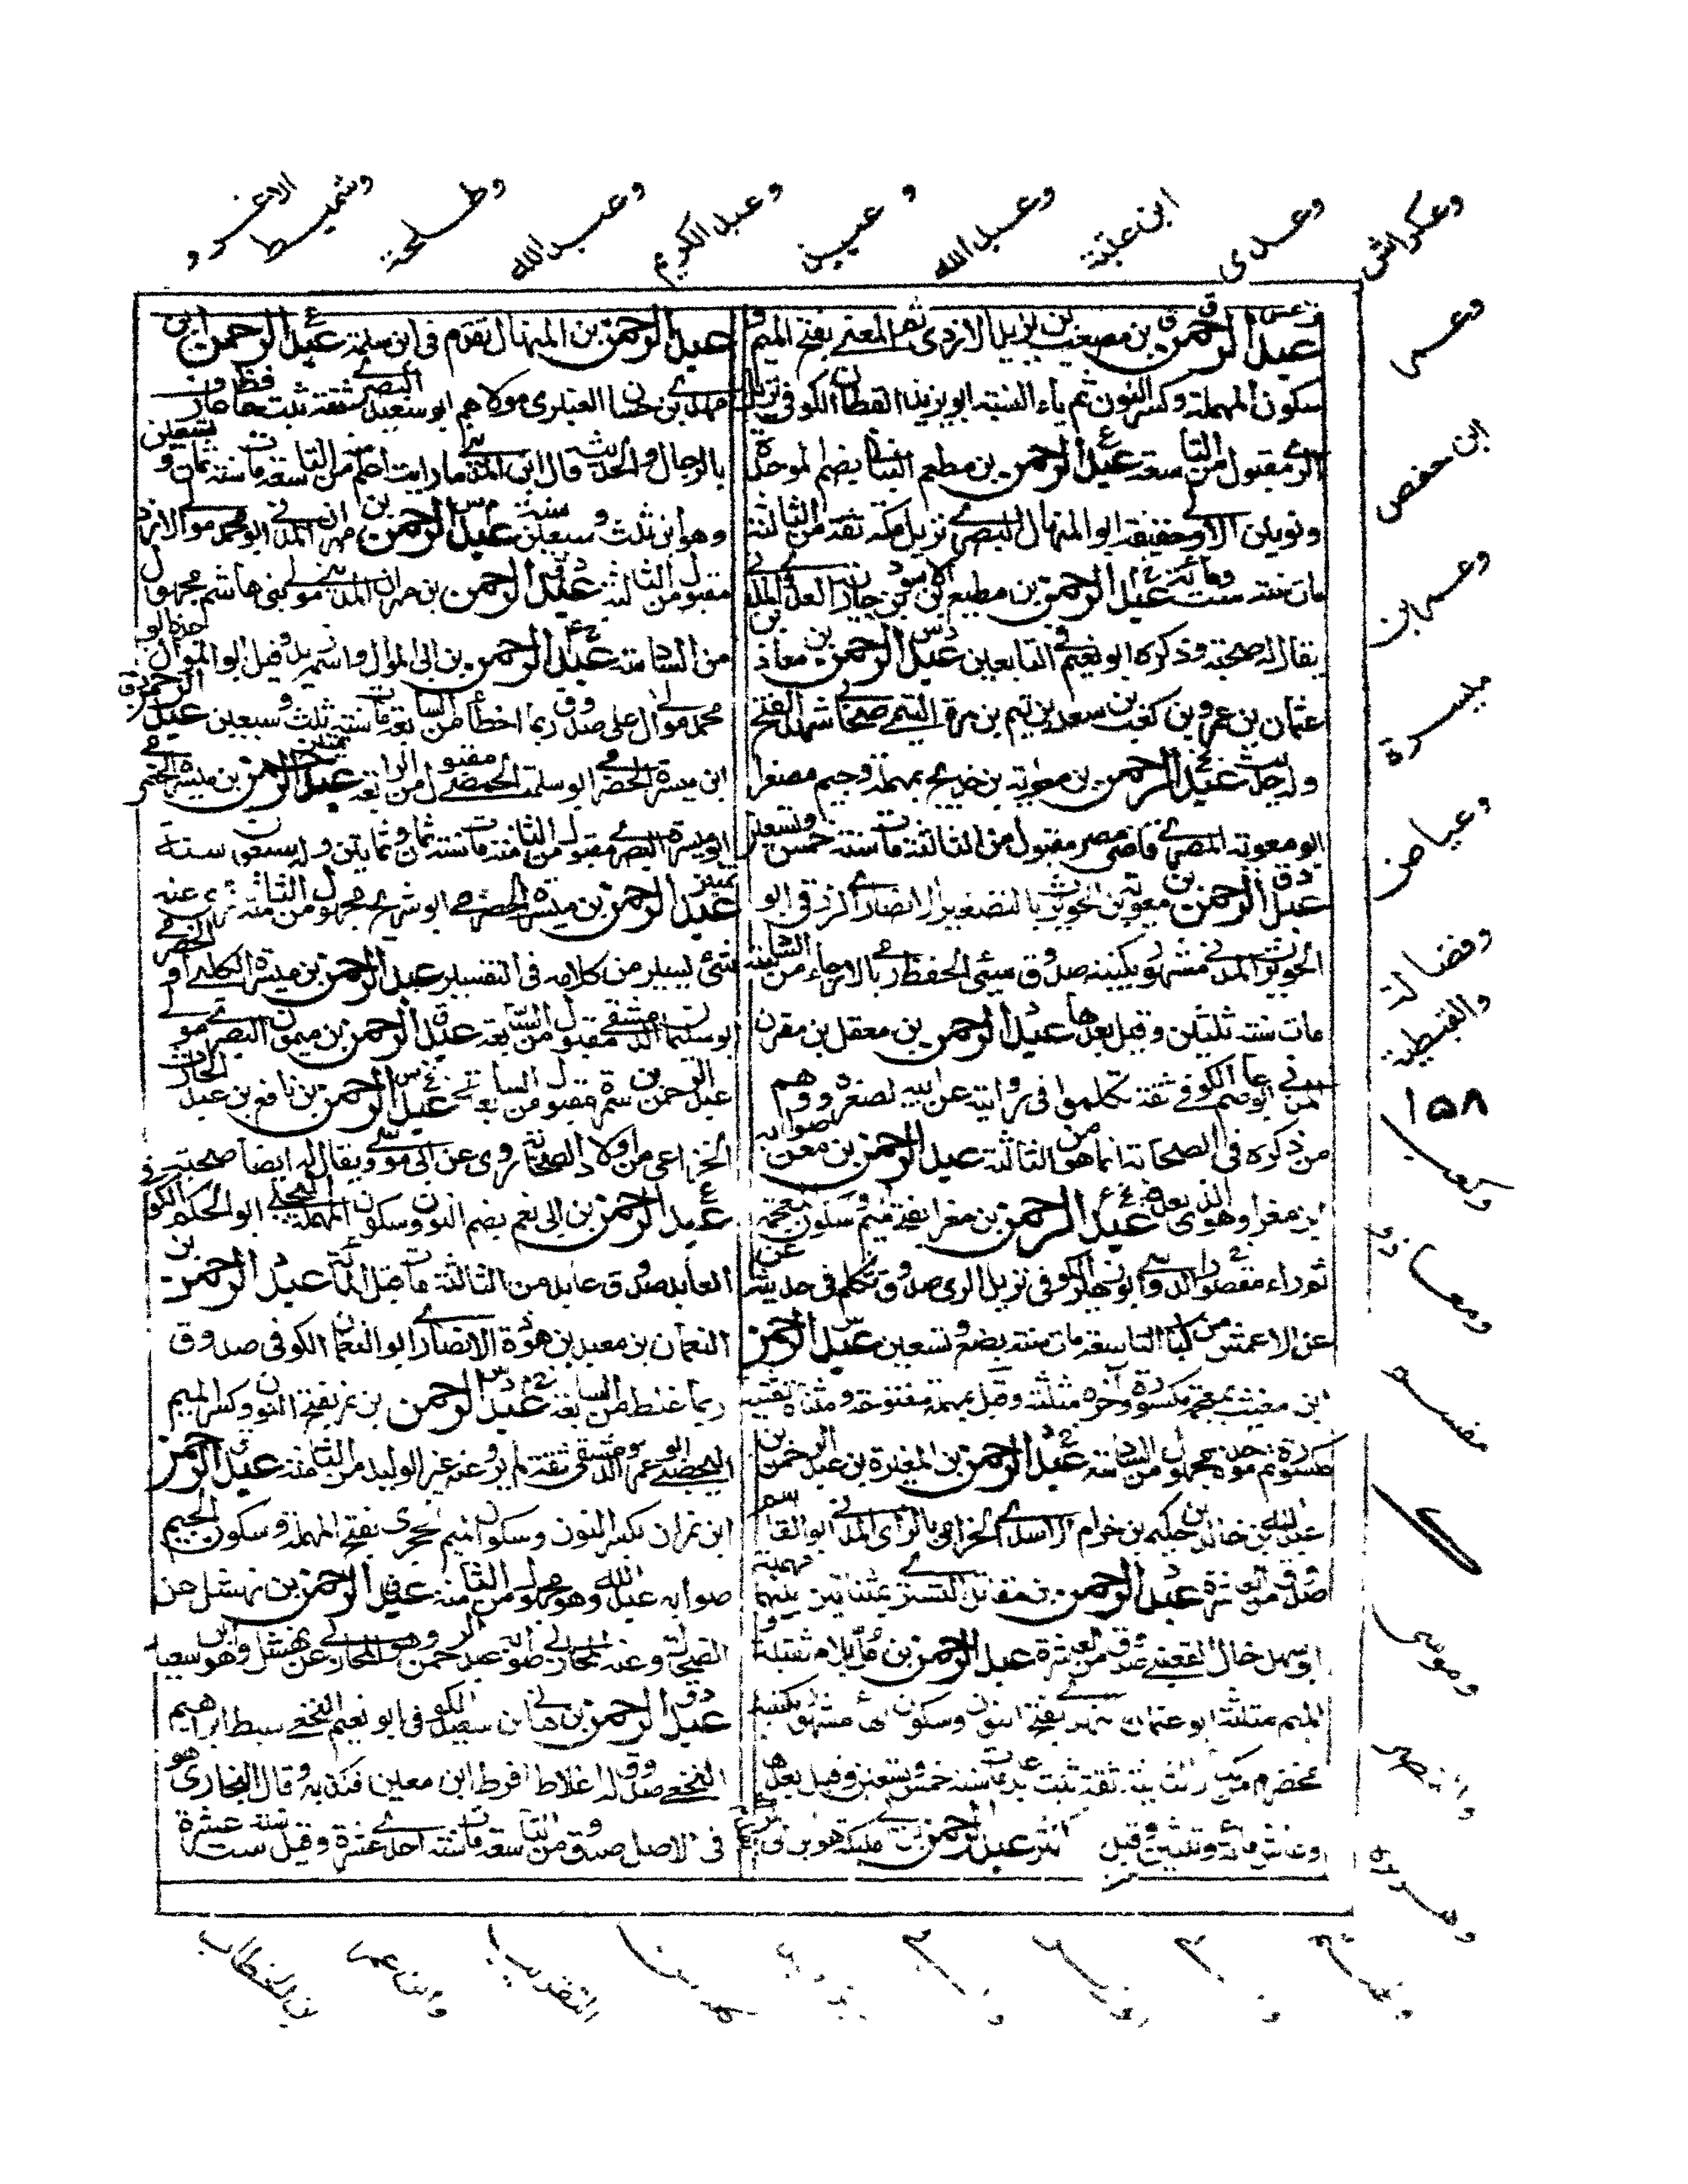 وعكراش
وعدى
ابن عقبة
وعبد الله
وعبد الكريم
وعبد الله
وطلحة
وشميط
الاغر و
عبد الرحمن بن مصعب بن يزيد الازدى ثم المعنى بفتح الميم و
سكون المهملة وكسر النون ثم ياء النسبة ابو يزيد القطان الكوفى نزيل
الرى مقبول من التاسعة عبد الرحمن بن مطعم البنانى بضم الموحدة
ونونين الاولى خفيفة ابو المنهال البصرى نزيل مكة ثقة من الثالثة
مات سنة ست ومائة عبد الرحمن بن مطيع بن الاسود بن حارثة العدوى المدنى
يقال له صحبة وذكره ابو نعيم فى التابعين عبد الرحمن بن معاذ بن
عثمان بن عمرو بن كعب بن سعد بن تيم بن مرة التيمى صحابى شهد الفتح
وله حديث عبد الرحمن بن معوية بن خديج بمهملة وجيم مصغرا
ابو معوية المصرى قاضى مصر مقبول من الثالثة مات سنة خمس وتسعين
عبد الرحمن بن معوية بن الحويرث بالتصغير الانصارى الزرقى ابو
الحويرث المدنى مشهور بكنيته صدوق سيئ الحفظ رمى بالارجاء من السادسة
مات سنة ثلثين وقيل بعدها عبد الرحمن بن معقل بن مقرن
المزنى ابو عاصم الكوفى ثقة تكلموا فى روايته عن ابيه لصغره ووهم
من ذكره فى الصحابة انما هو من الثالثة عبد الرحمن بن معن صوابه
ابن مغرا وهو الذى بعده عبد الرحمن بن مغرا بفتح الميم وسكون المعجمة
ثم راء مقصورا الدوسى ابو زهير الكوفى نزيل الرى صدوق تكلم فى حديثه عن
عن الاعمش من كبار التاسعة مات سنة بضع وتسعين عبد الرحمن
ابن مغيث بمعجمة مكسورة وآخره مثلثة وقيل بمهملة مفتوحة ومثناة تحتية
مكسورة ثم موحدة مجهول من السادسة عبد الرحمن بن المغيرة بن عبد الرحمن بن
عبد الله بن خالد بن حكيم بن حزام الاسدى الحزامى بالزاى المدنى ابو القاسم
صدوق من العاشرة عبد الرحمن بن مقاتل التسترى بمثناتين بينهما مهملة
ابو سهل خال القعنبى صدوق من العاشرة عبد الرحمن بن مل بلام ثقيلة و
الميم مثلثة ابو عثمان النهدى بفتح النون وسكون الهاء مشهور بكنيته
مخضرم من كبار الثانية ثقة ثبت عابد مات سنة خمس وتسعين وقيل بعدها
وعاش مائة وثلثين وقيل اكثر عبد الرحمن بن ملكية هو بن ابى بكر
عبد الرحمن بن المنهال تقدم فى ابن سلمة عبد الرحمن بن
مهدى بن حسان العنبرى مولاهم ابو سعيد البصرى ثقة ثبت حافظ عارف
بالرجال والحديث قال ابن المدينى ما رايت اعلم منه من التاسعة مات سنة ثمان وتسعين
وهو ابن ثلث وسبعين سنة عبد الرحمن بن مهران المدنى ابو محمد مولى الازد
مقبول من الثالثة عبد الرحمن بن مهران المدينى مولى بنى هاشم مجهول
من السادسة عبد الرحمن بن ابى الموال واسمه زيد وقيل ابو الموال جده ابو
محمد مولى آل على صدوق ربما اخطأ من السابعة مات سنة ثلث وسبعين عبد الرحمن
ابن ميسرة الحضرمى ابو سلمة الحمصى مقبول من الرابعة عبد الرحمن بن ميسرة الحضرمى
ابو ميسرة المصرى مقبول من الثامنة مات سنة ثمان وثمانين وله تسعون سنة
عبد الرحمن بن ميسرة الحضرمى ابو شريح مجهول من الثالثة روى عنه
شئ يسير من كلامه فى التفسير عبد الرحمن بن ميسرة الكلبى او الحضرمى
ابو سليمان الدمشقى مقبول من السابعة عبد الرحمن بن ميمون البصرى مولى
عبد الرحمن بن سمرة مقبول من السابعة عبد الرحمن بن نافع بن عبد الحارث
الخزاعى من اولاد الصحابة روى عن ابى موسى ويقال له ايضا صحبة
عبد الرحمن بن ابى نعم بضم النون وسكون المهملة البجلى ابو الحكم الكوفى
العابد صدوق عابد من الثالثة مات قبل المائة عبد الرحمن بن
النعمان بن معبد بن هوذة الانصارى ابو النعمان الكوفى صدوق
ربما غلط من السابعة عبد الرحمن بن نمر بفتح النون وكسر الميم
اليحصبى ابو عمرو الدمشقى ثقة لم يرو عنه غير الوليد من الثامنة عبد الرحمن
ابن نمران بكسر النون وسكون الميم الحجرى بفتح المهملة وسكون الجيم
صوابه عبد الله وهو مجهول من الثامنة عبد الرحمن بن نهشل عن
الضحاك وعنه المحاربى صوابه عبد الرحمن وهو المحاربى عن نهشل وهو ابن سعيد
عبد الرحمن بن هانى بن سعيد الكوفى ابو نعيم النخعى سبط ابراهيم
النخعى صدوق له اغلاط افرط ابن معين فكذبه وقال البخارى هو
فى الاصل صدوق من التاسعة مات سنة احدى عشرة وقيل ست عشرة سنة
وعمر
ابن حفص
وعمر ابن
ميسرة
وعياض
وفضالة
والقبطية
١٥٨
وكعب
ومعاذ
وموسى
والنضر
وابنا عمر